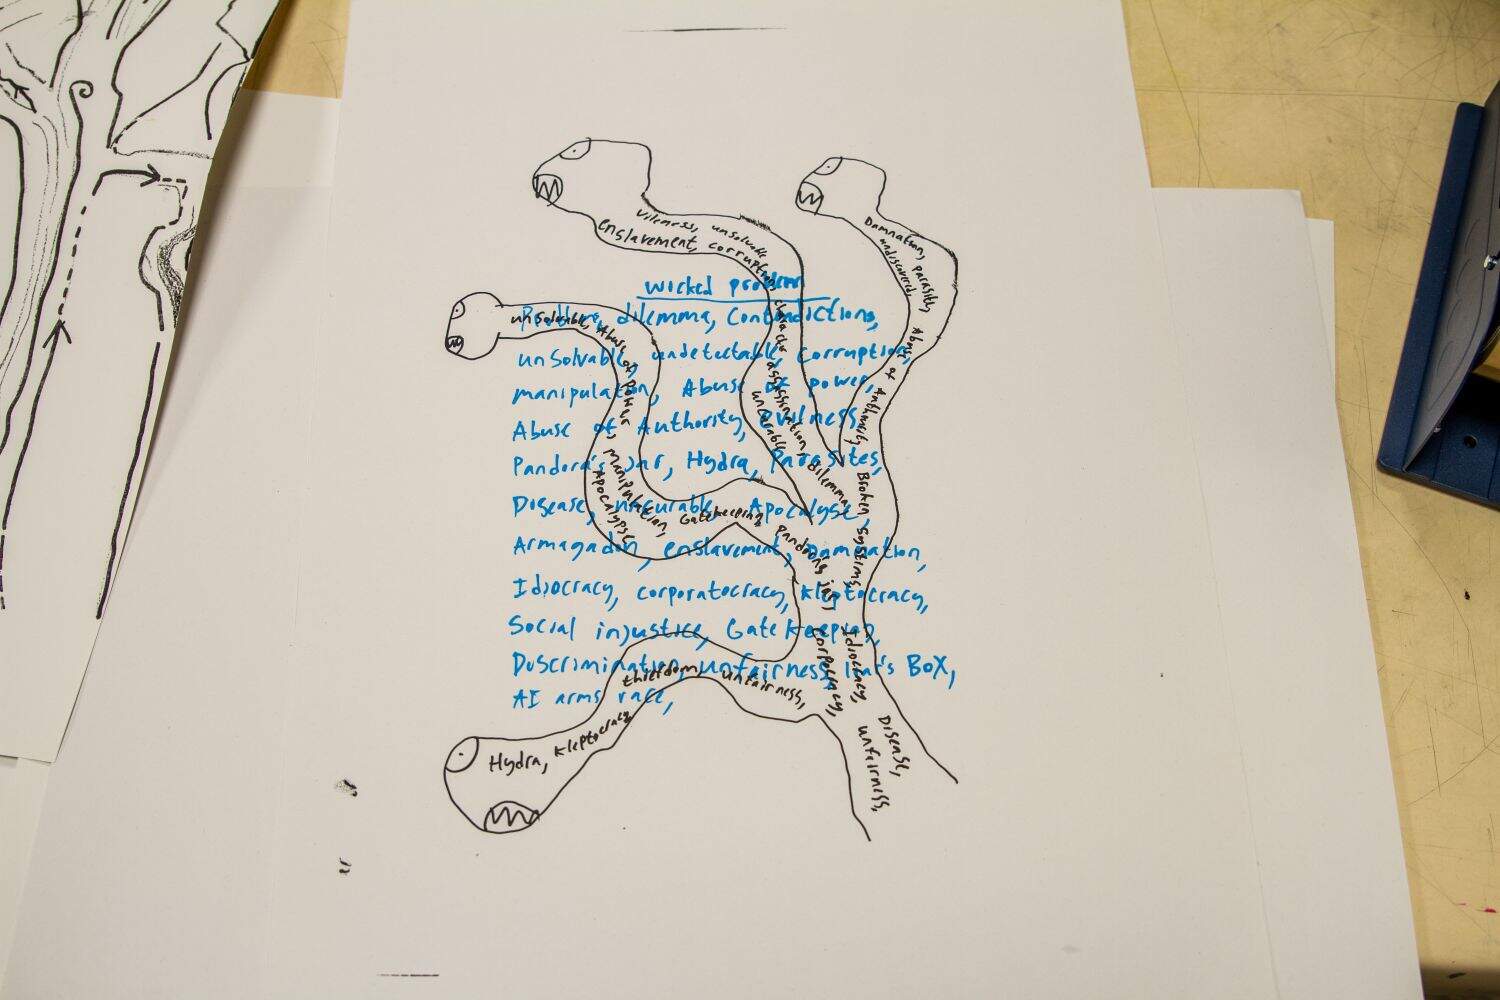 wicked problem
Problem, dilemma, Contradictions,
unSolvable, undetectable, Corruption,
manipulation, Abuse of power,
Abuse of Authority, evilness,
Pandora's Jar, Hydra, Parasites,
Disease, uncurable, Apocalyse,
Armagadon, enslavement, Damnation,
Idiocracy, corporatocracy, kleptocracy,
Social injustice, GateKeeping,
Discrimination, unfairness, BOX,
AI arms race,
Vileness, unsolvable
enslavement, corruption, character assassination, dilemma,
uncurable
Damnation, parasites, Abuse of Authority, Broken Systems,
undiscovered,
unSolvable, Abuse of Power, Manipulation, Gatekeeping, pandoras jar,
Apocalypse
Idiocracy, Disease,
unfairness,
Hydra, kleptocracy, thiefdom, unfairness,